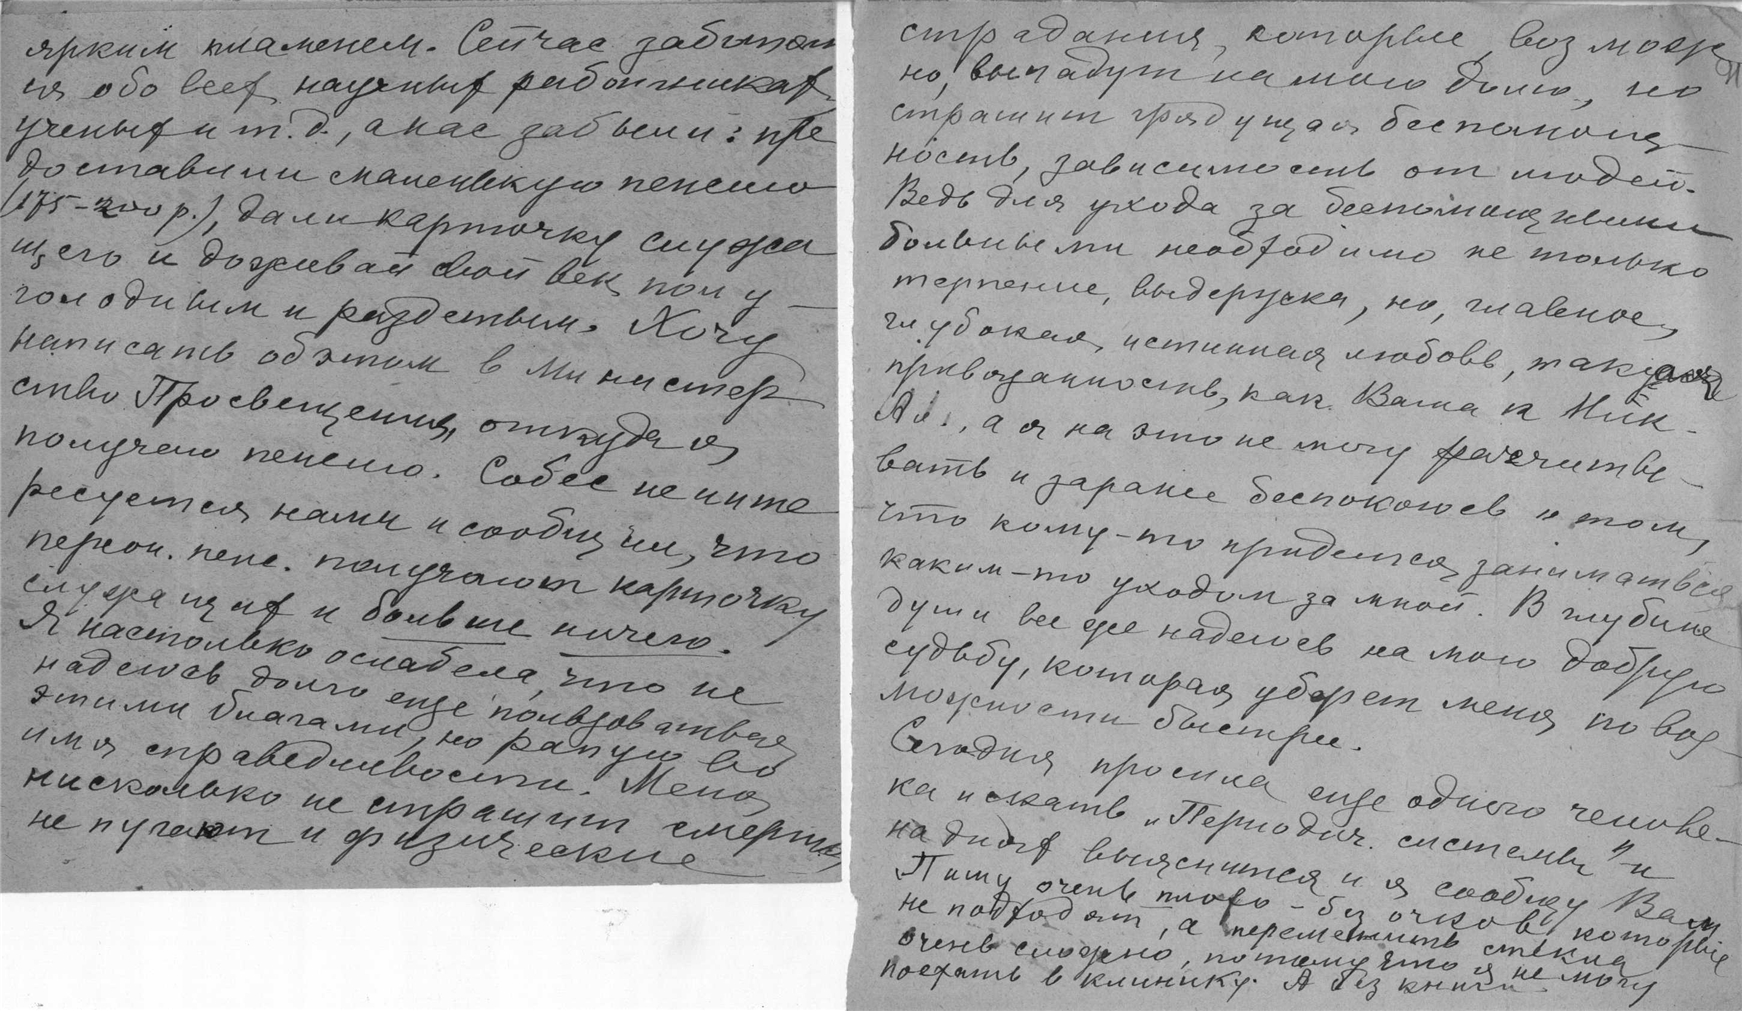 ярким пламенем. Сейчас заботят
ся обо всех научных работниках,
ученых и т.д., а нас забыли: пре
доставили маленькую пенсию
(175-200 р.), дали карточку служа
щего и доживай свой век полу-
голодным и раздетым. Хочу
написать об этом в Министер
ство Просвещения, откуда я
получаю пенсию. Собес не инте
ресуется нами и сообщил, что
персон. пенс. получают карточку
служащих и больше ничего.
Я настолько ослабела, что не
надеюсь долго еще пользоваться
этими благами, но ратую во
имя справедливости. Меня
нисколько не страшит смерть,
не пугают и физические
страдания, которые, возмож
но, выпадут на мою долю, но
страшит грядущая беспомощ-
ность, зависимость от людей.
Ведь для ухода за беспомощными
больными необходимо не только
терпение, выдержка, но, главное,
глубокая, истинная любовь, такая
привязанность, как Ваша к Ник.
Ал., а я на это не могу рассчиты-
вать и заранее беспокоюсь о том,
что кому-то придется заниматься
каким-то уходом за мной. В глубине
души все же надеюсь на мою добрую
судьбу, которая уберет меня по воз-
можности быстрее.
Сегодня просила еще одного челове-
ка искать „Периодич. системы" и
на днях выяснится и я сообщу Вам
Пишу очень плохо - без очков, которые
не подходят, а переменить стекла
очень сложно, потому что я не могу
поехать в клинику. А без книги